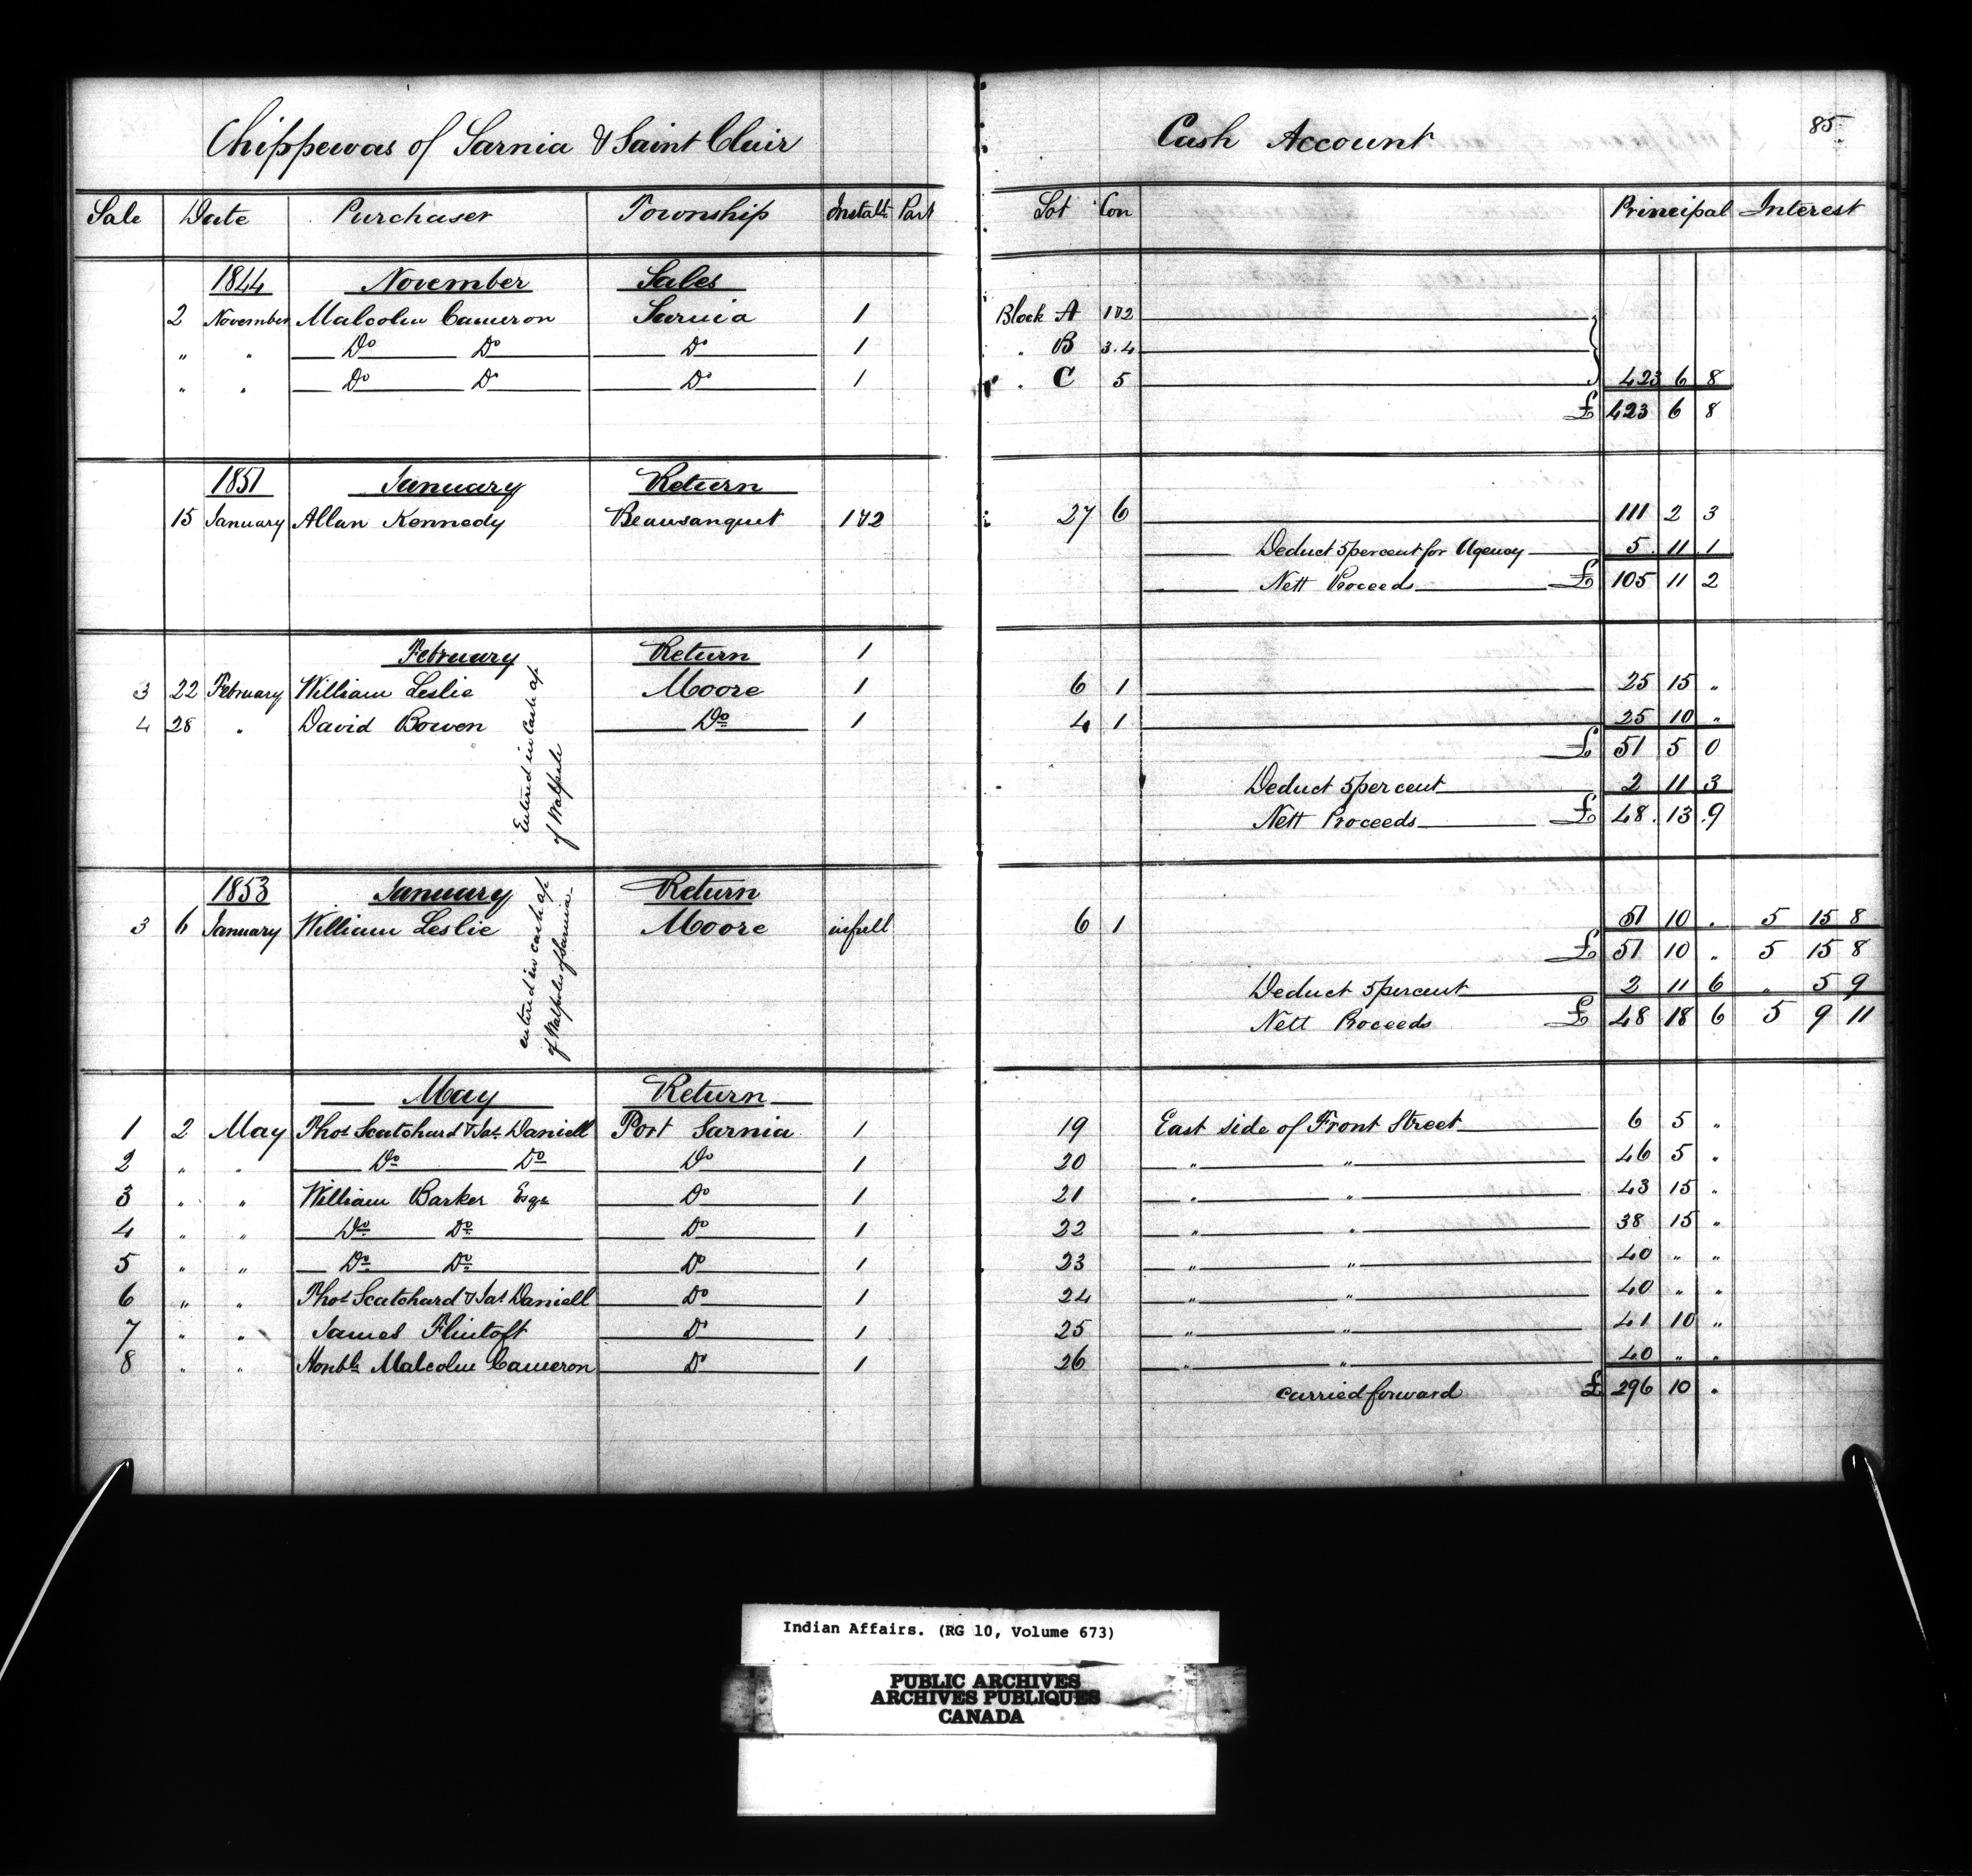 Chippewas of Sarnia & Saint Clair Cash Account 85
Sale Date Purchaser Township Instalt Part Lot Con Principal Interest
1844 November Sales
2 November Malcolm Cameron Sarnia 1 Block A 1&2
" " Do Do Do 1 " B 3.4
" " Do Do Do 1 " C 5 423 6 8
£ 423 6 8
1851 January Return
15 January Allan Kennedy Beausanquet 1&2 27 6 111 2 3
Deduct 5 percent for Agency 5 11 1
Nett Proceeds £ 105 11 2
February Return 1
3 22 February William Leslie Moore 1 6 1 25 15 "
4 28 " David Bowen Do 1 4 1 25 10 "
£ 51 5 0
Deduct 5 per cent 2 11 3
Nett Proceeds £ 48 . 13 . 9
Entered in Cash ap
of Walpole
1853 January Return
3 6 January William Leslie Moore in full 6 1 51 10 . 5 15 8
£ 51 10 " 5 15 8
Deduct 5 percent 2 11 6 " 5 9
Nett Proceeds £ 48 18 6 5 9 11
entered in cash ap
of Walpole of Sarnia
May Return
1 2 May Thos Scatchard & Jas Daniell Port Sarnia 1 19 East side of Front Street 6 5 "
2 " " Do Do Do 1 20 " " 46 5 "
3 " " William Barker Esqr Do 1 21 " " 43 15 "
4 " " Do Do Do 1 22 " " 38 15 "
5 " " Do Do Do 1 23 " " 40 " "
6 " " Thos Scatchard & Jas Daniell Do 1 24 " " 40 " "
7 " " James Flintoft Do 1 25 " " 41 10 "
8 " " Honble Malcolm Cameron Do 1 26 " " 40 " "
carried forward £ 296 10 .
Indian Affairs. (RG 10, Volume 673)
PUBLIC ARCHIVES
ARCHIVES PUBLIQUES
CANADA